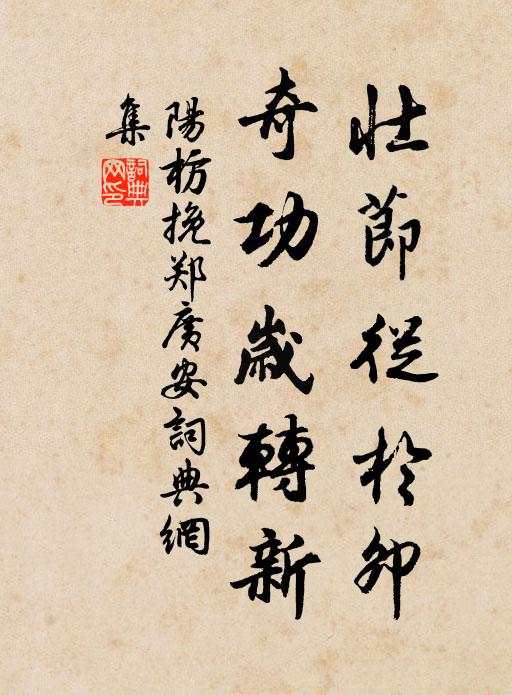 壮節從於卯
奇功歲轉新
陽枋挽郑廣安詞典網
集
詞典網印